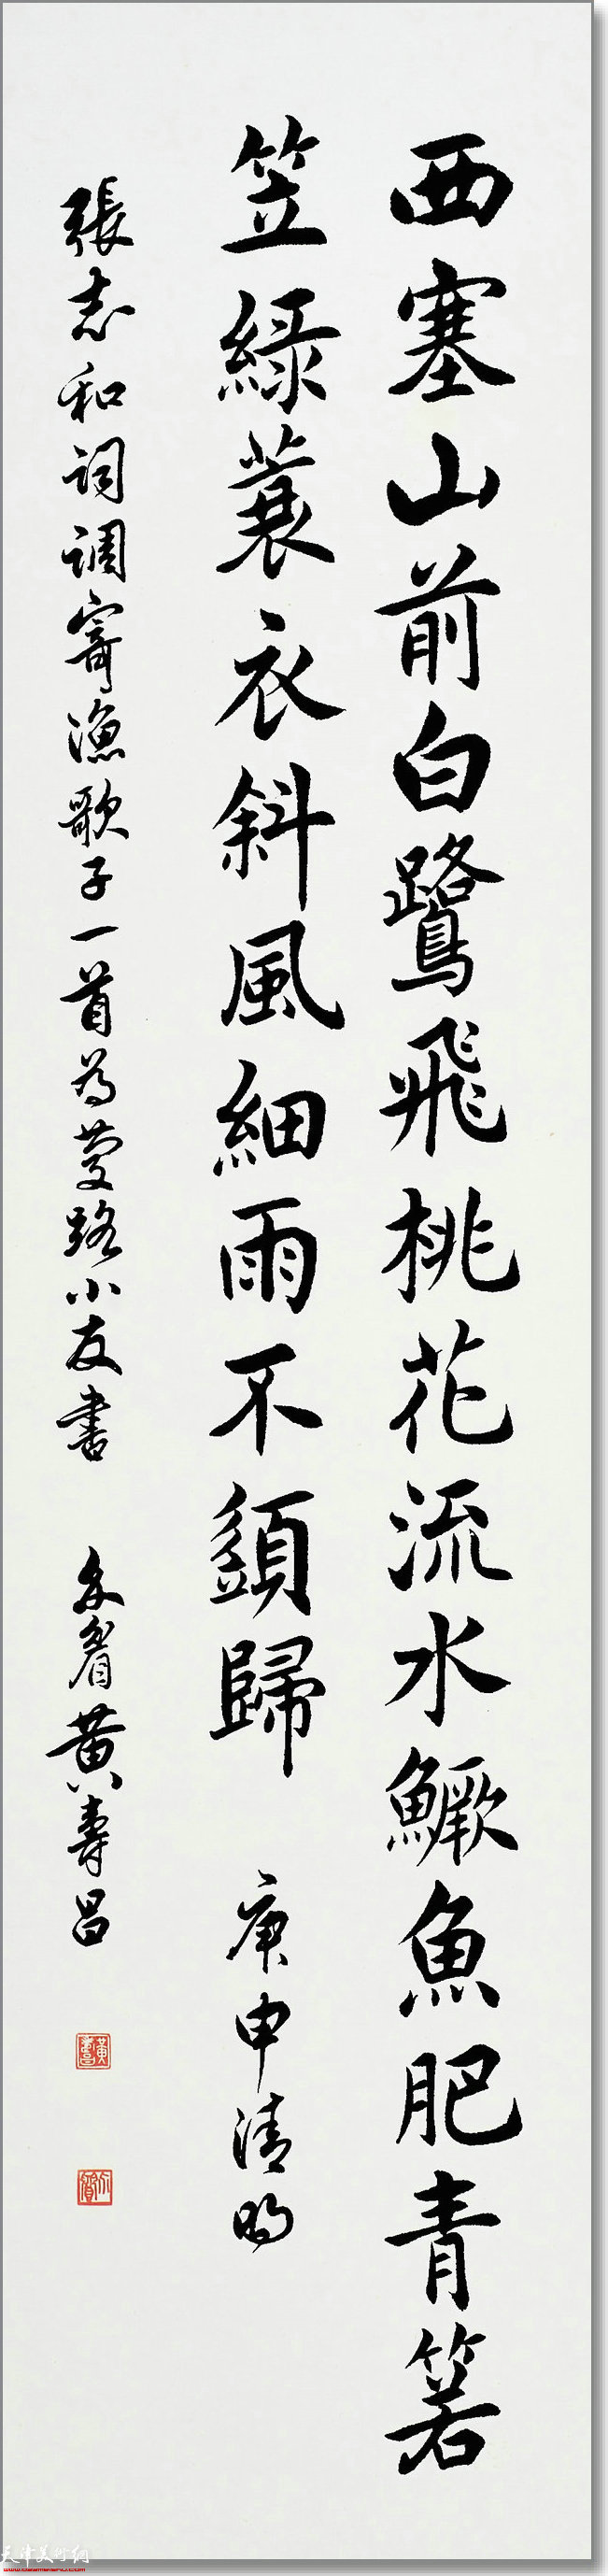 西塞山前白鷺飛桃花流水鱖魚肥青箬
笠綠蓑衣斜風細雨不須歸 庚申清明
張志和詞調寄漁歌子一首為蔓路小友書 黃壽昌
天津美術網